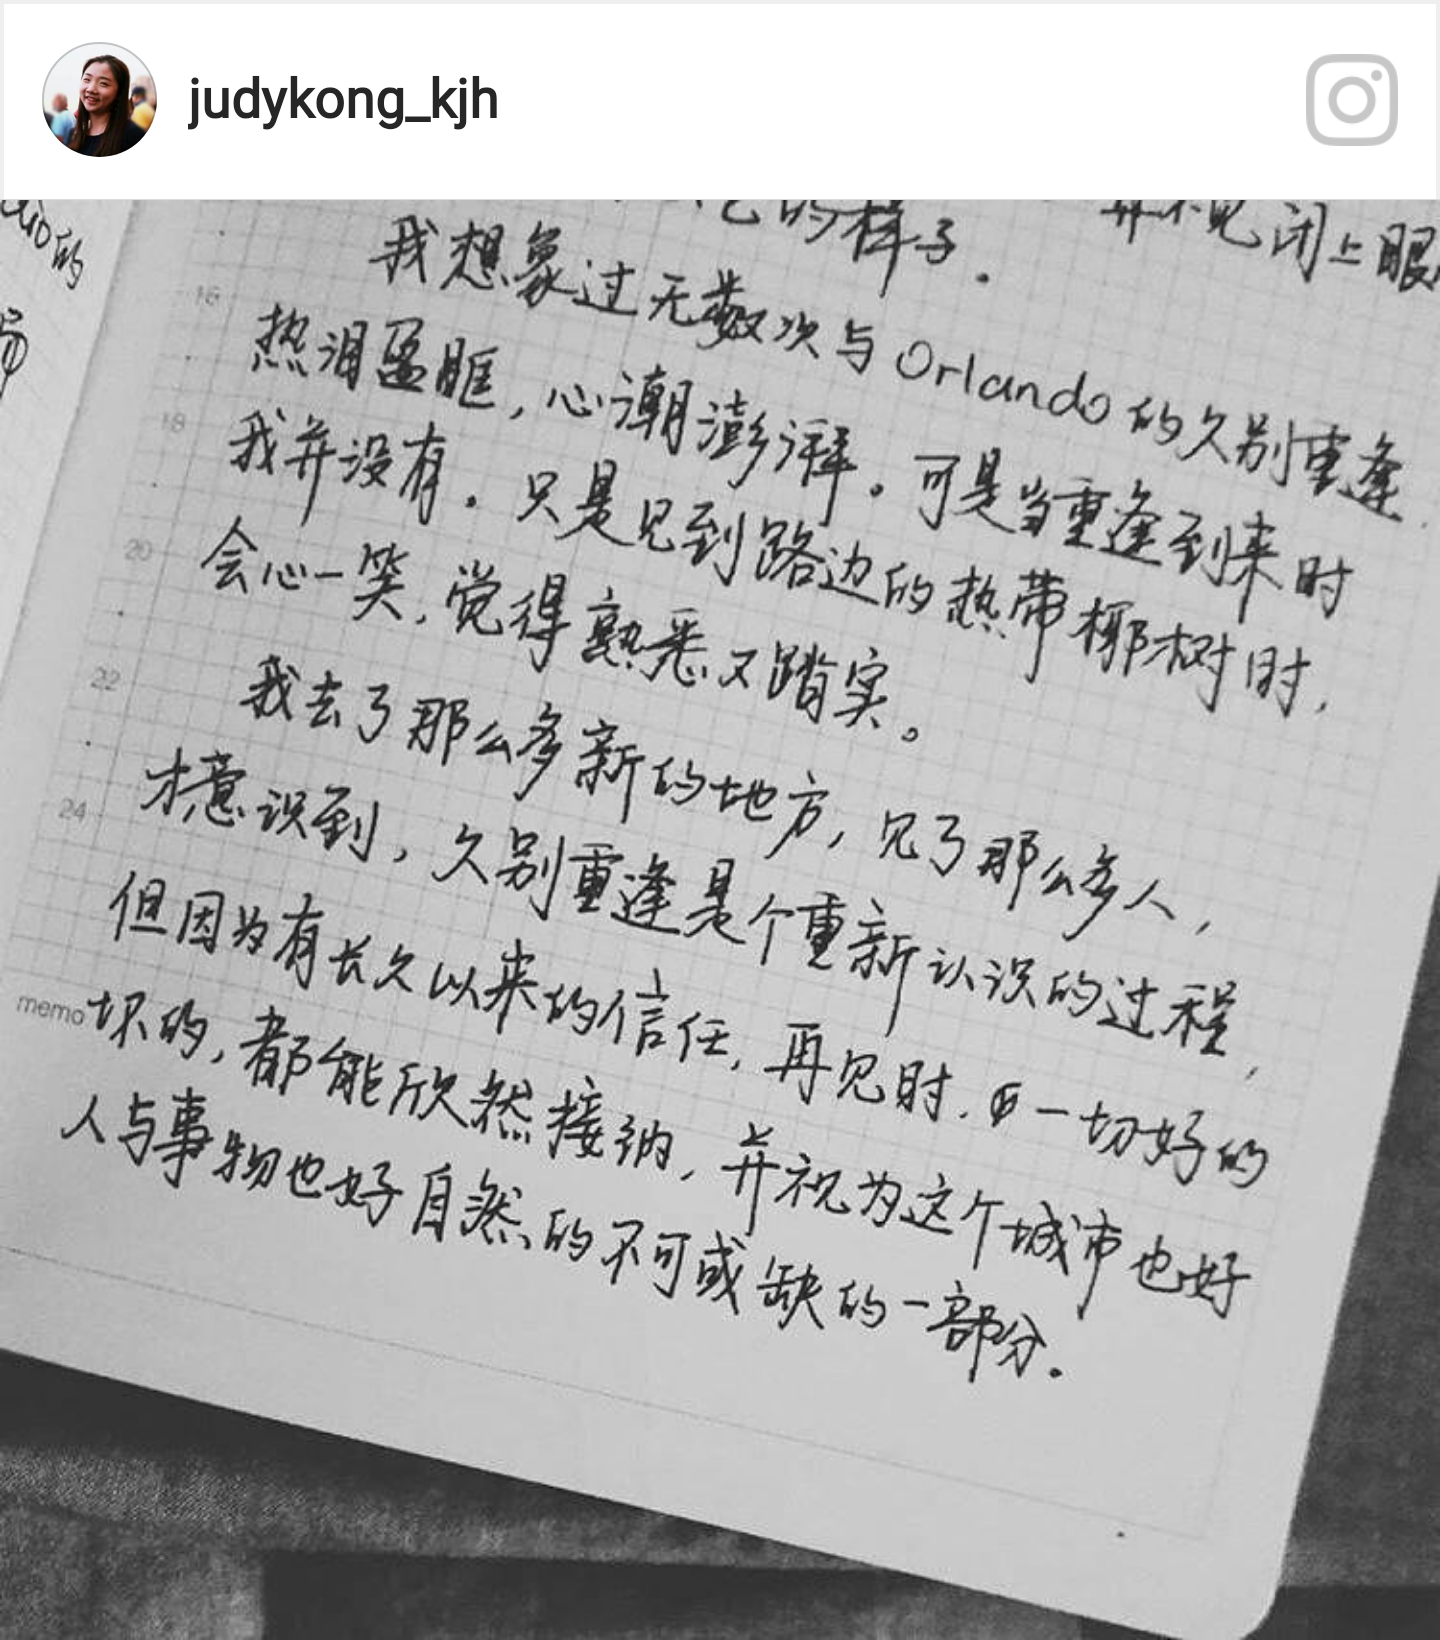 judykong_kjh
的样子。
闭上眼
的
我想象过无数次与Orlando的久别重逢
16
热泪盈眶,心潮澎湃。可是当重逢到来时
18
我并没有。只是见到路边的热带椰树时,
20
会心一笑,觉得熟悉又踏实。
22
我去了那么多新的地方,见了那么多人,
24
才意识到,久别重逢是个重新认识的过程,
但因为有长久以来的信任,再见时,一切好的
memo
坏的,都能欣然接纳,并视为这个城市也好
人与事物也好自然的不可或缺的一部分。